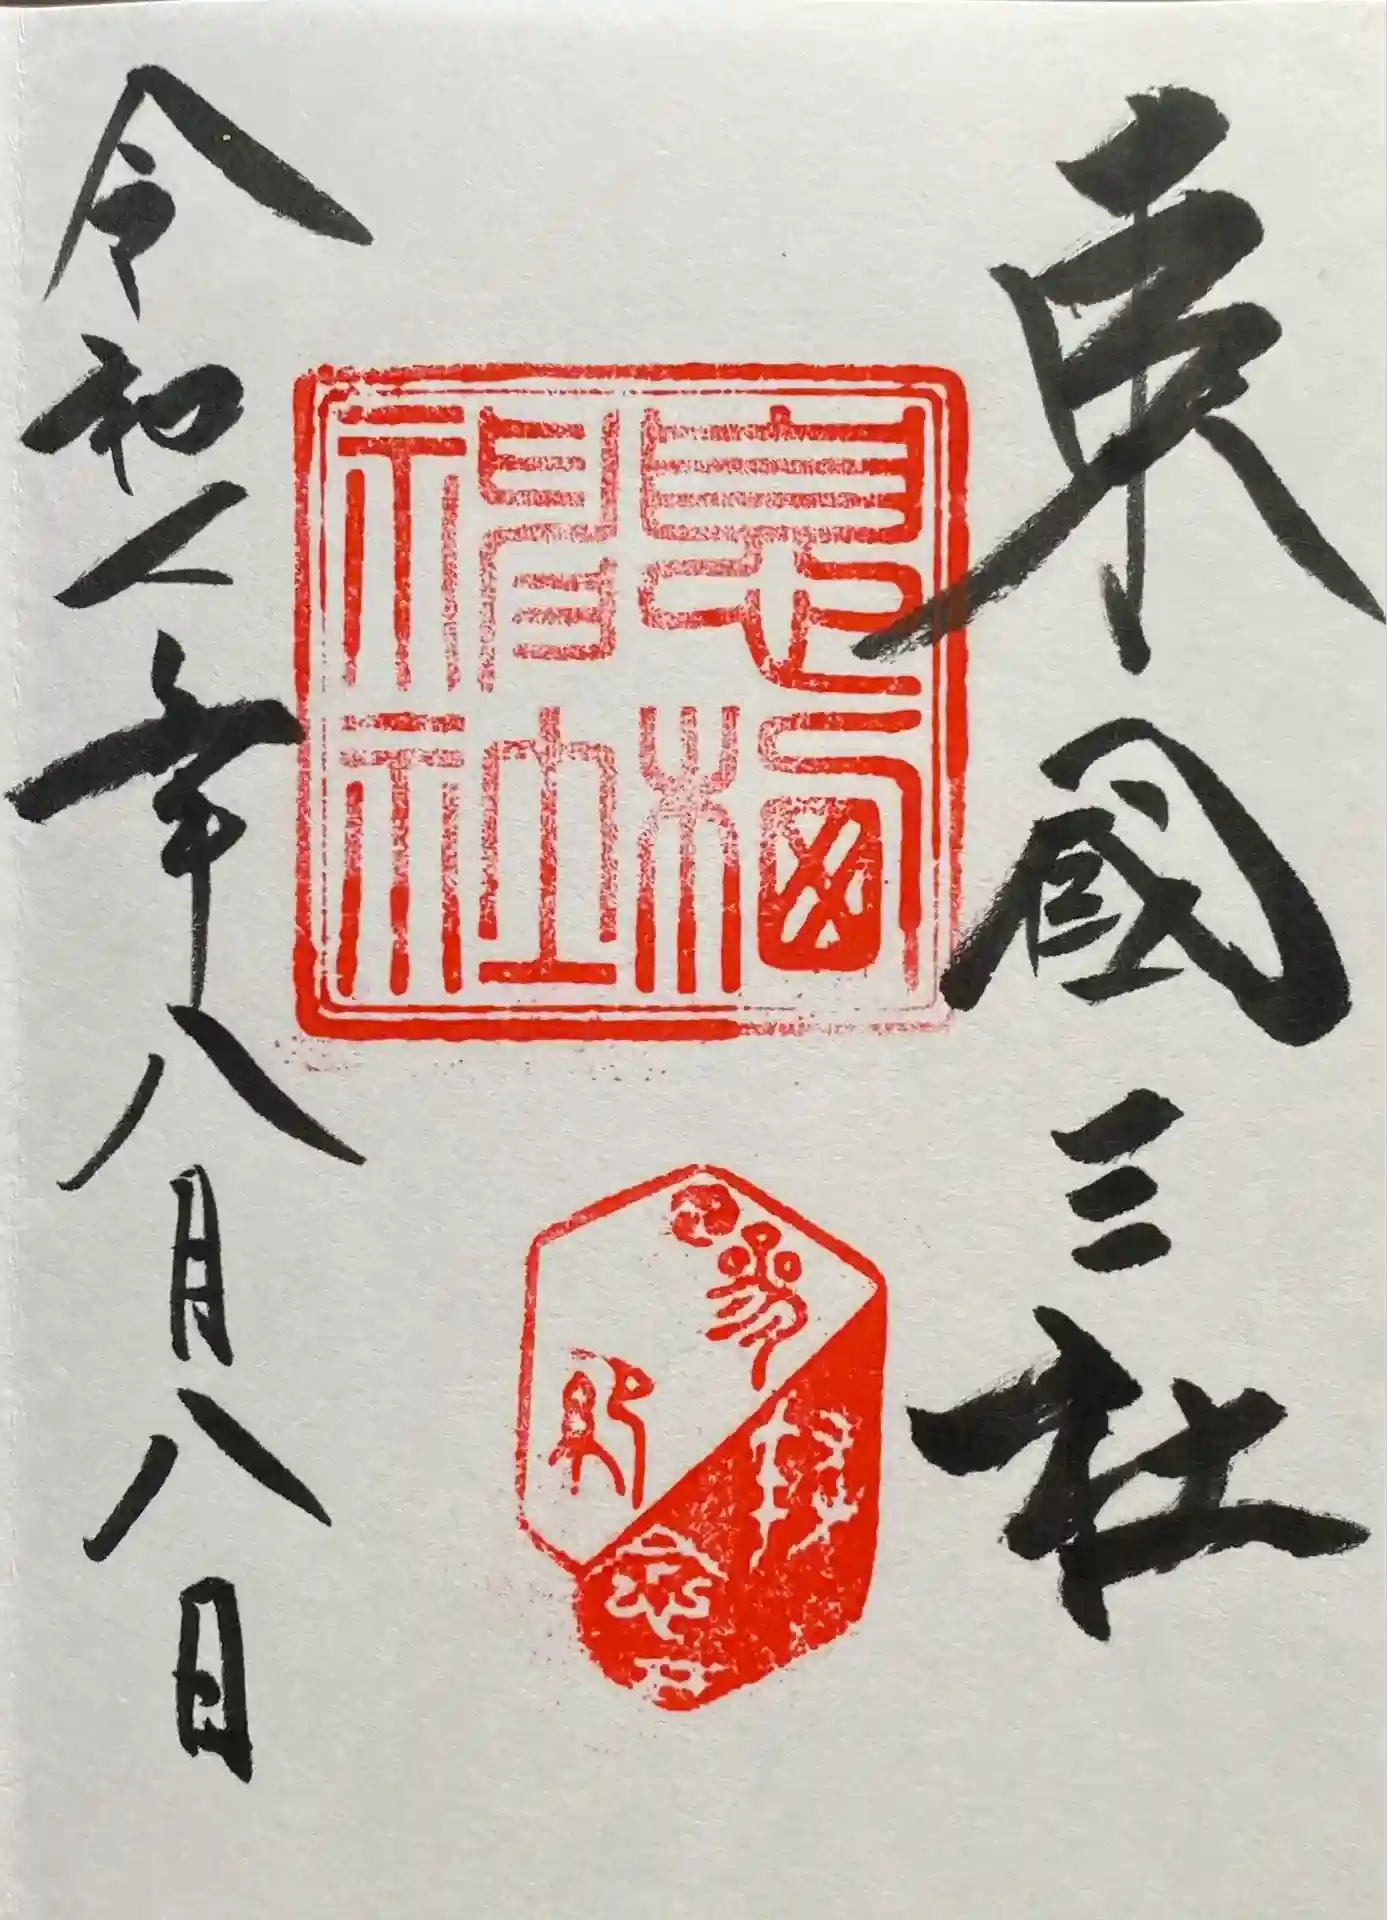 東國三社
息栖
神社
令和二年八月八日